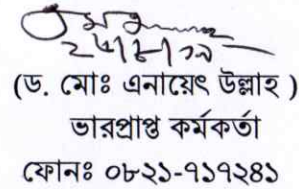 ২৭/৮/১৯
(ড. মোঃ এনায়েৎ উল্লাহ )
ভারপ্রাপ্ত কর্মকর্তা
ফোনঃ ০৮২১-৭১৭২৪১